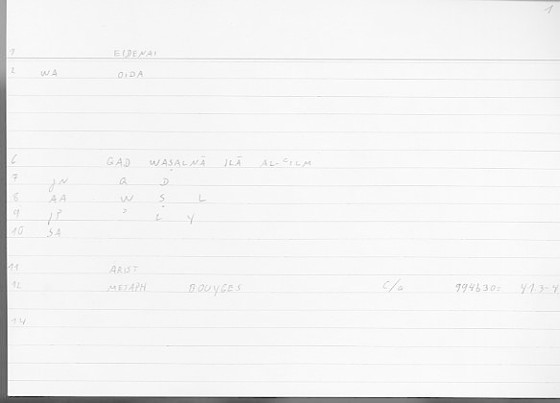 1
1 EIDENAI
2 WA OIDA
6 QAD WAṢALNĀ ILĀ AL-ʿILM
7 JN Q D
8 AA W Ṣ L
9 JP ʾ L Y
10 SA
11 ARIST
12 METAPH BOUYGES C/a
14